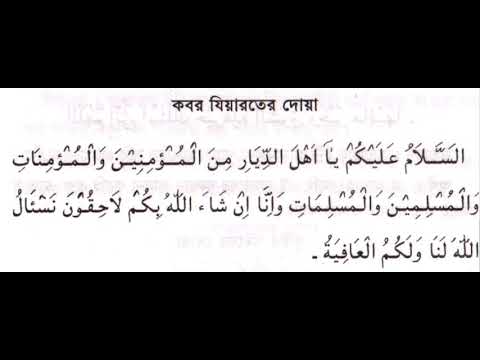 কবর যিয়ারতের দোয়া
السَّلَامُ عَلَيْكُمْ يَاَ اَهْلَ الدِّيَارِ مِنَ الْمُؤْمِنِيْنَ وَالْمُؤْمِنَاتِ
وَالْمُسْلِمِيْنَ وَالْمُسْلِمَاتِ وَاِنَّا اِنْ شَاءَ اللهُ بِكُمْ لَاحِقُوْنَ نَسْئَالُ
اللهَ لَنَا وَلَكُمُ الْعَافِيَةُ -